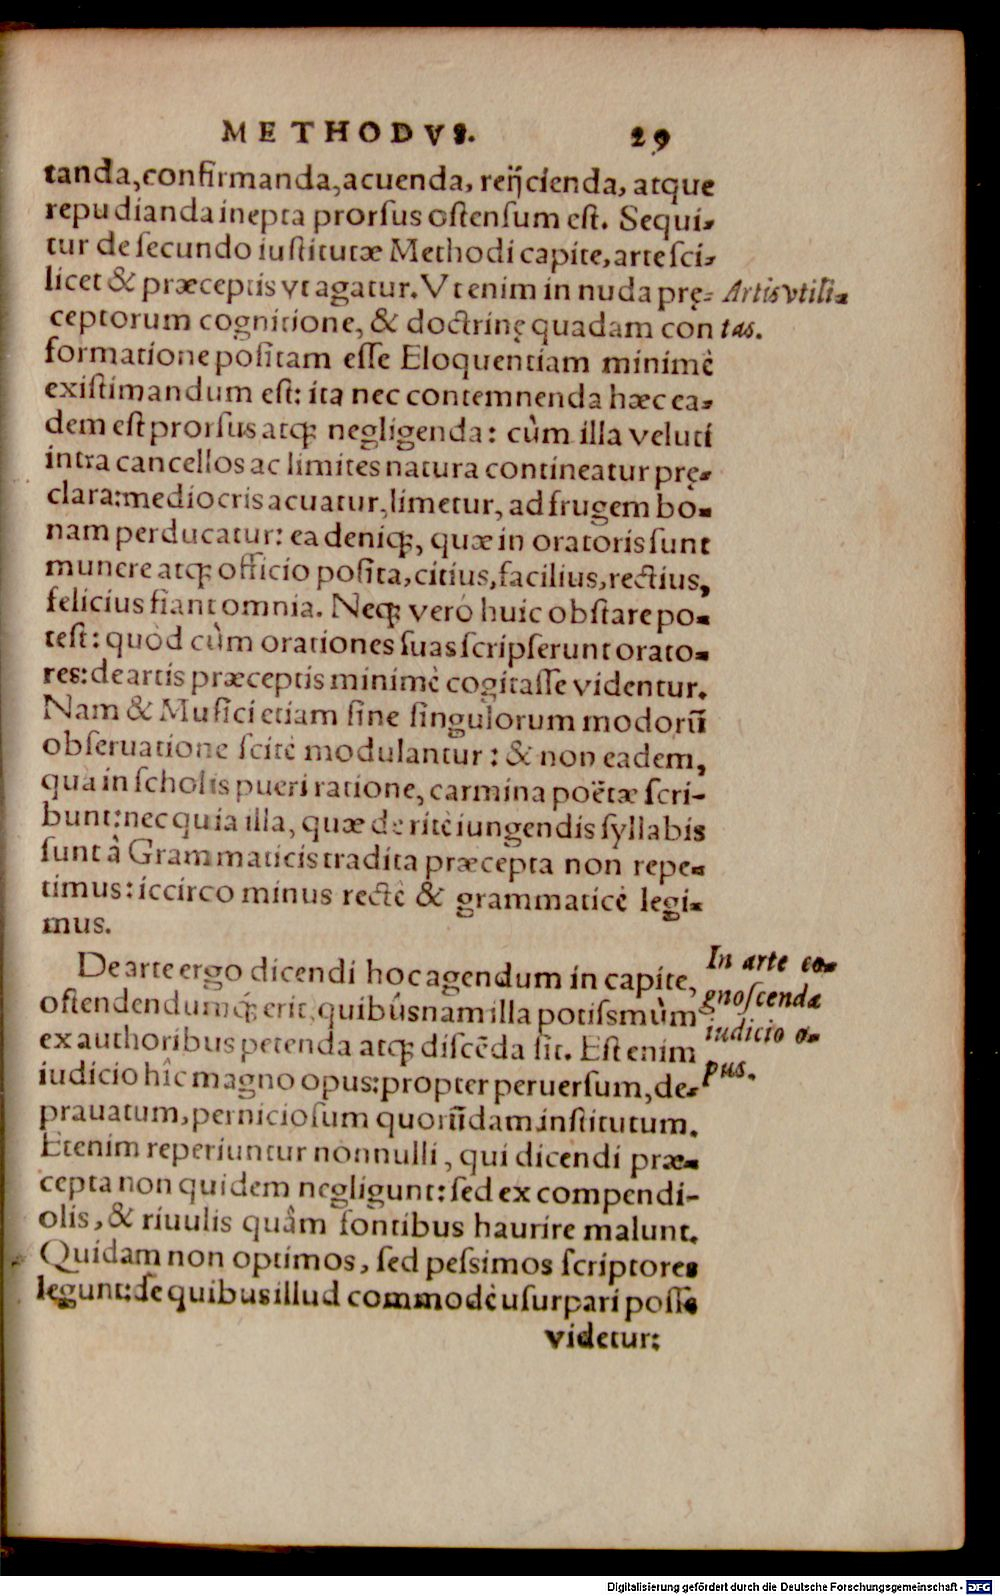 METHODVS. 29
tanda, confirmanda, acuenda, reijcienda, atque
repudianda inepta prorſus oſtenſum eſt. Sequi-
tur de ſecundo iuſtitutæ Methodi capite, arte ſci-
licet & præceptis vt agatur. Vt enim in nuda prę-
Artis vtili-
ceptorum cognitione, & doctrinę quadam con
tas.
formatione poſitam eſſe Eloquentiam minimè
exiſtimandum eſt: ita nec contemnenda hæc ea-
dem eſt prorſus atq; negligenda: cùm illa veluti
intra cancellos ac limites natura contineatur prę-
clara: mediocris acuatur, limetur, ad frugem bo-
nam perducatur: ea deniq;, quæ in oratoris ſunt
munere atq; officio poſita, citius, facilius, rectius,
felicius fiant omnia. Neq; veró huic obſtare po-
teſt: quòd cùm orationes ſuas ſcripſerunt orato-
res: de artis præceptis minimè cogitaſſe videntur.
Nam & Muſici etiam ſine ſingulorum modorũ
obſeruatione ſcitè modulantur: & non eadem,
qua in ſcholis pueri ratione, carmina poëtæ ſcri-
bunt: nec quia illa, quæ de ritè iungendis ſyllabis
ſunt à Grammaticis tradita præcepta non repe-
timus: iccirco minus rectè & grammaticè legi-
mus.
De arte ergo dicendi hoc agendum in capite,
In arte co-
oſtendendumq́; erit, quibúsnam illa potiſsmùm
gnoſcenda
ex authoribus petenda atq; diſcẽda ſit. Eſt enim
iudicio o-
iudicio hîc magno opus: propter peruerſum, de-
pus.
prauatum, pernicioſum quorũdam inſtitutum.
Etenim reperiuntur nonnulli, qui dicendi præ-
cepta non quidem negligunt: ſed ex compendi-
olis, & riuulis quâm fontibus haurire malunt.
Quidam non optimos, ſed peſsimos ſcriptores
legunt: de quibus illud commodè uſurpari poſſe
videtur:
Digitalisierung gefördert durch die Deutsche Forschungsgemeinschaft - DFG